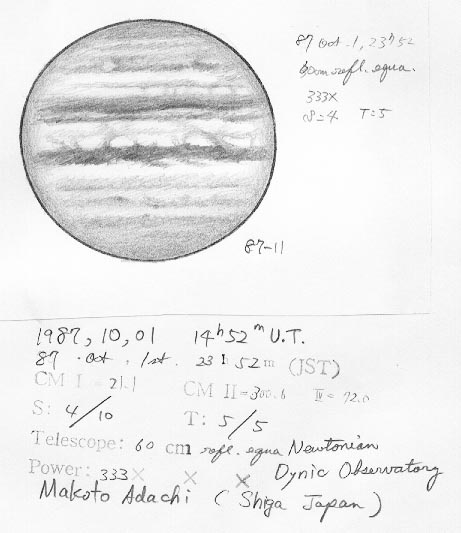 87 Oct. 1, 23h52
60cm refl. equa.
333X
S=4 T=5
87-11
1987, 10, 01 14h 52m U.T.
87 . Oct . 1st. 23 h 52 m (JST)
CM I = 21.1 CM II = 300.6 III = 72.0
S: 4/10 T: 5/5
Telescope: 60 cm refl. equa Newtonian
Power: 333 × × × Dynic Observatory
Makoto Adachi ( Shiga Japan )